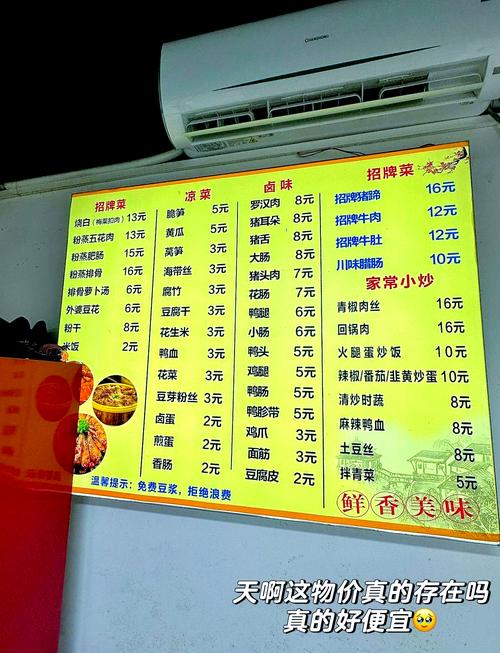 CHANGHONG
招牌菜
烧白(梅菜扣肉) 13元
粉蒸五花肉 13元
粉蒸肥肠 15元
粉蒸排骨 16元
排骨萝卜汤 6元
外婆豆花 6元
粉干 8元
米饭 2元
凉菜
脆笋 5元
黄瓜 5元
莴笋 3元
海带丝 3元
腐竹 3元
豆腐干 3元
花生米 3元
鸭血 3元
花菜 3元
豆芽粉丝 3元
卤蛋 2元
煎蛋 2元
香肠 2元
卤味
罗汉肉 8元
猪耳朵 8元
猪舌 8元
大肠 8元
猪头肉 7元
花肠 7元
鸭腿 6元
小肠 6元
鸭头 5元
鸡腿 5元
鸭肠 5元
鸭胗带 5元
鸡爪 3元
面筋 3元
豆腐皮 2元
招牌菜
招牌猪蹄 16元
招牌牛肉 12元
招牌牛肚 12元
川味腊肠 10元
家常小炒
青椒肉丝 16元
回锅肉 16元
火腿蛋炒饭 10元
辣椒/番茄/韭黄炒蛋 10元
清炒时蔬 8元
麻辣鸭血 8元
土豆丝 8元
拌青菜 5元
温馨提示:免费豆浆,拒绝浪费
鲜香美味
天啊这物价真的存在吗
真的好便宜🥹